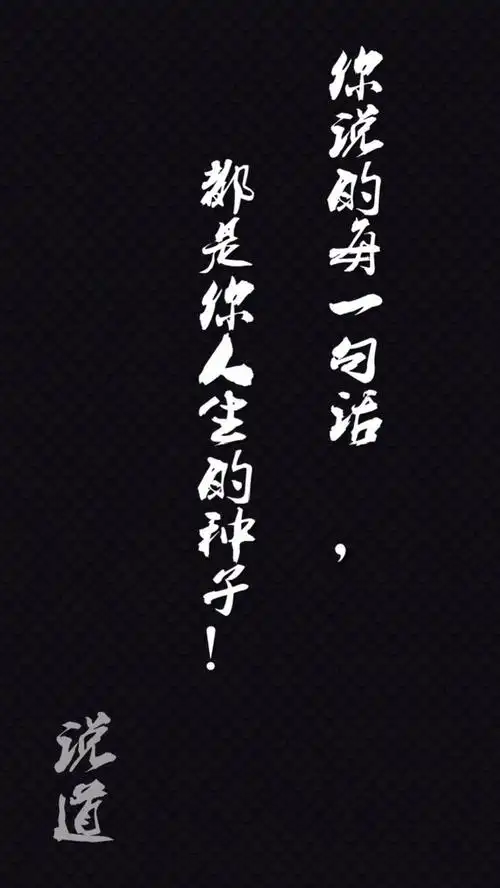 你说的每一句话，
都是你人生的种子！
说道